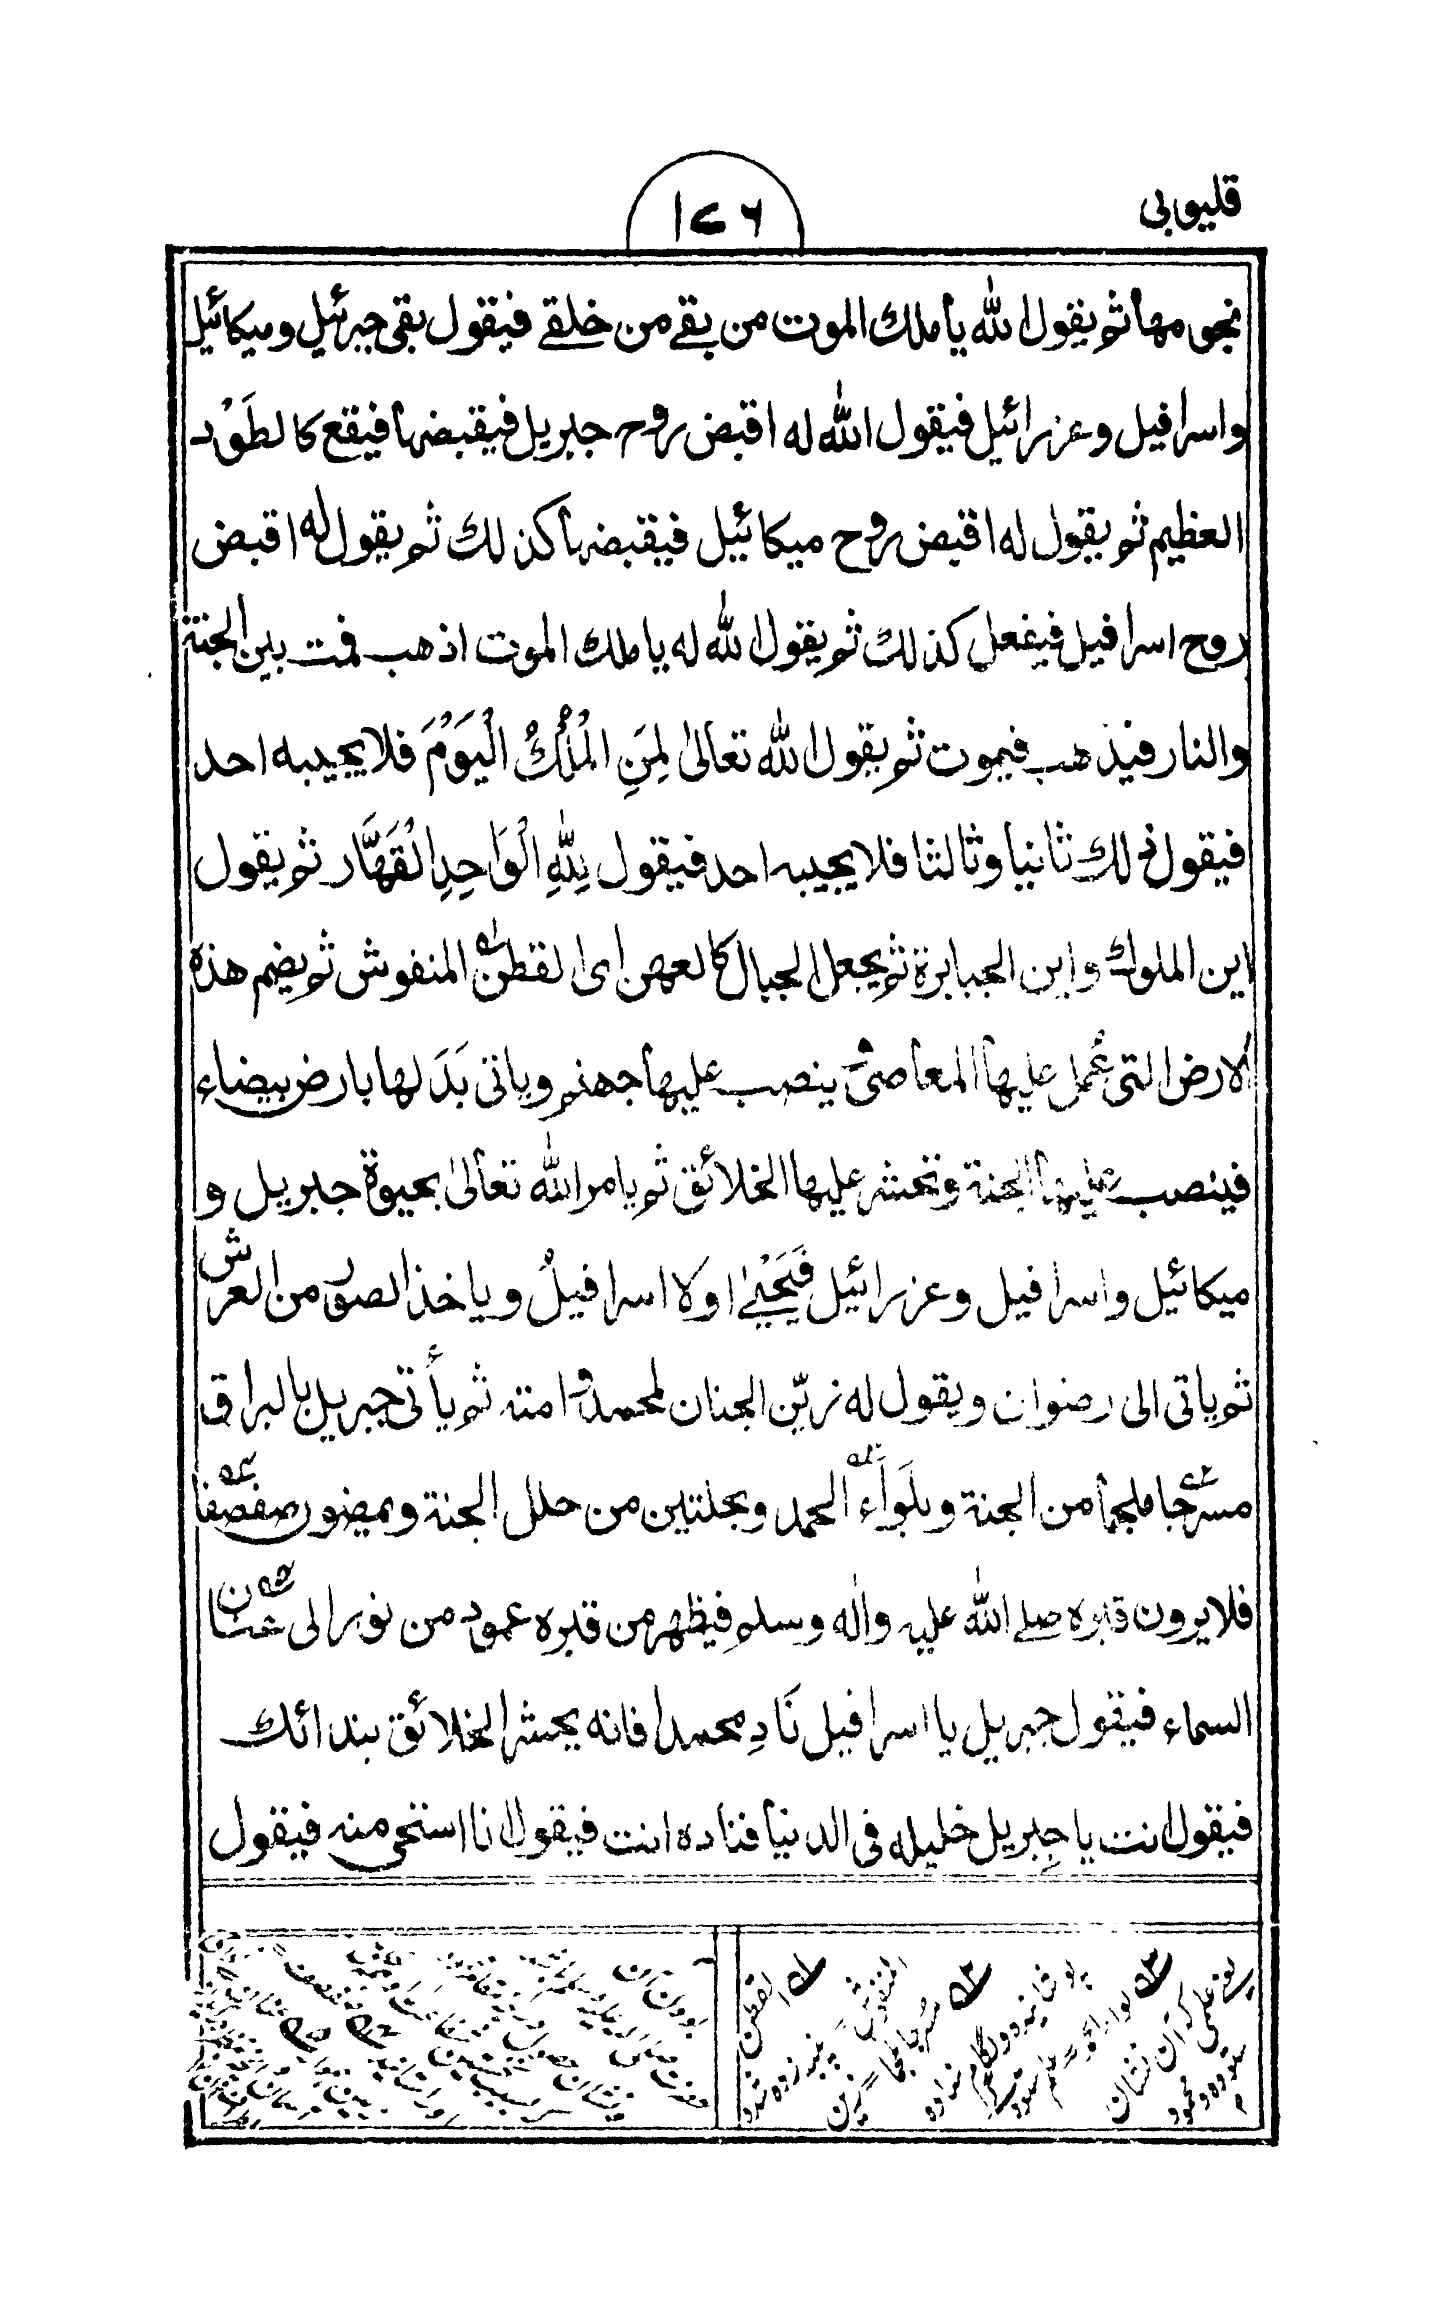 قليوبي
١٧٦
نجومها ثم يقول الله يا ملك الموت من بقے من خلقے فيقول بقى جبرئيل وميكائيل
واسرافيل وعزرائيل فيقول الله له اقبض روح جبريل فيقبضها فيقع كالطَوْد
العظيم ثم يقول له اقبض روح ميكائيل فيقبضها كذلك ثم يقول له اقبض
روح اسرافيل فيفعل كذلك ثم يقول الله له يا ملك الموت اذهب فمت بين الجنة
والنار فيذهب فيموت ثم يقول الله تعالىٰ لِمَنِ الْمُلْكُ الْيَوْمَ فلا يجيبه احد
فيقول ذلك ثانيا وثالثا فلا يجيبه احد فيقول لِلّٰهِ الْوَاحِدِ الْقَهَّار ثم يقول
اين الملوك واين الجبابرة ثم يجعل الجبال كالعهن اى القطن المنفوش ثم يضم هذه
الارض التى عُمل عليها المعاصى و ينصب عليها جهنم وياتى بَدَلها بارض بيضاء
فينصب عليها الجنة وتحشر عليها الخلائق ثم يامر الله تعالىٰ بحيوة جبريل و
ميكائيل واسرافيل وعزرائيل فَيَحْيىٰ اولا اسرافيلُ وياخذ الصور من العرش
ثم ياتى الى رضوان ويقول له زيّن الجنان لمحمد وامته ثم يأتى جبريل بالبراق
مسرّجا ملجما من الجنة وبلَواء الحمد وبحلتين من حلل الجنة ويمضون صفصفا
فلا يرون قبره صلے الله عليه واٰله وسلم فيظهر من قبره عمود من نور الى عنان
السماء فيقول جبريل يا اسرافيل نَادِ محمدا فانه يحشر الخلائق بندائك
فيقول انت يا جبريل خليله فى الدنيا فناده انت فيقول انا استحى منه فيقول
القطن المنفوش = پنبه زده شده